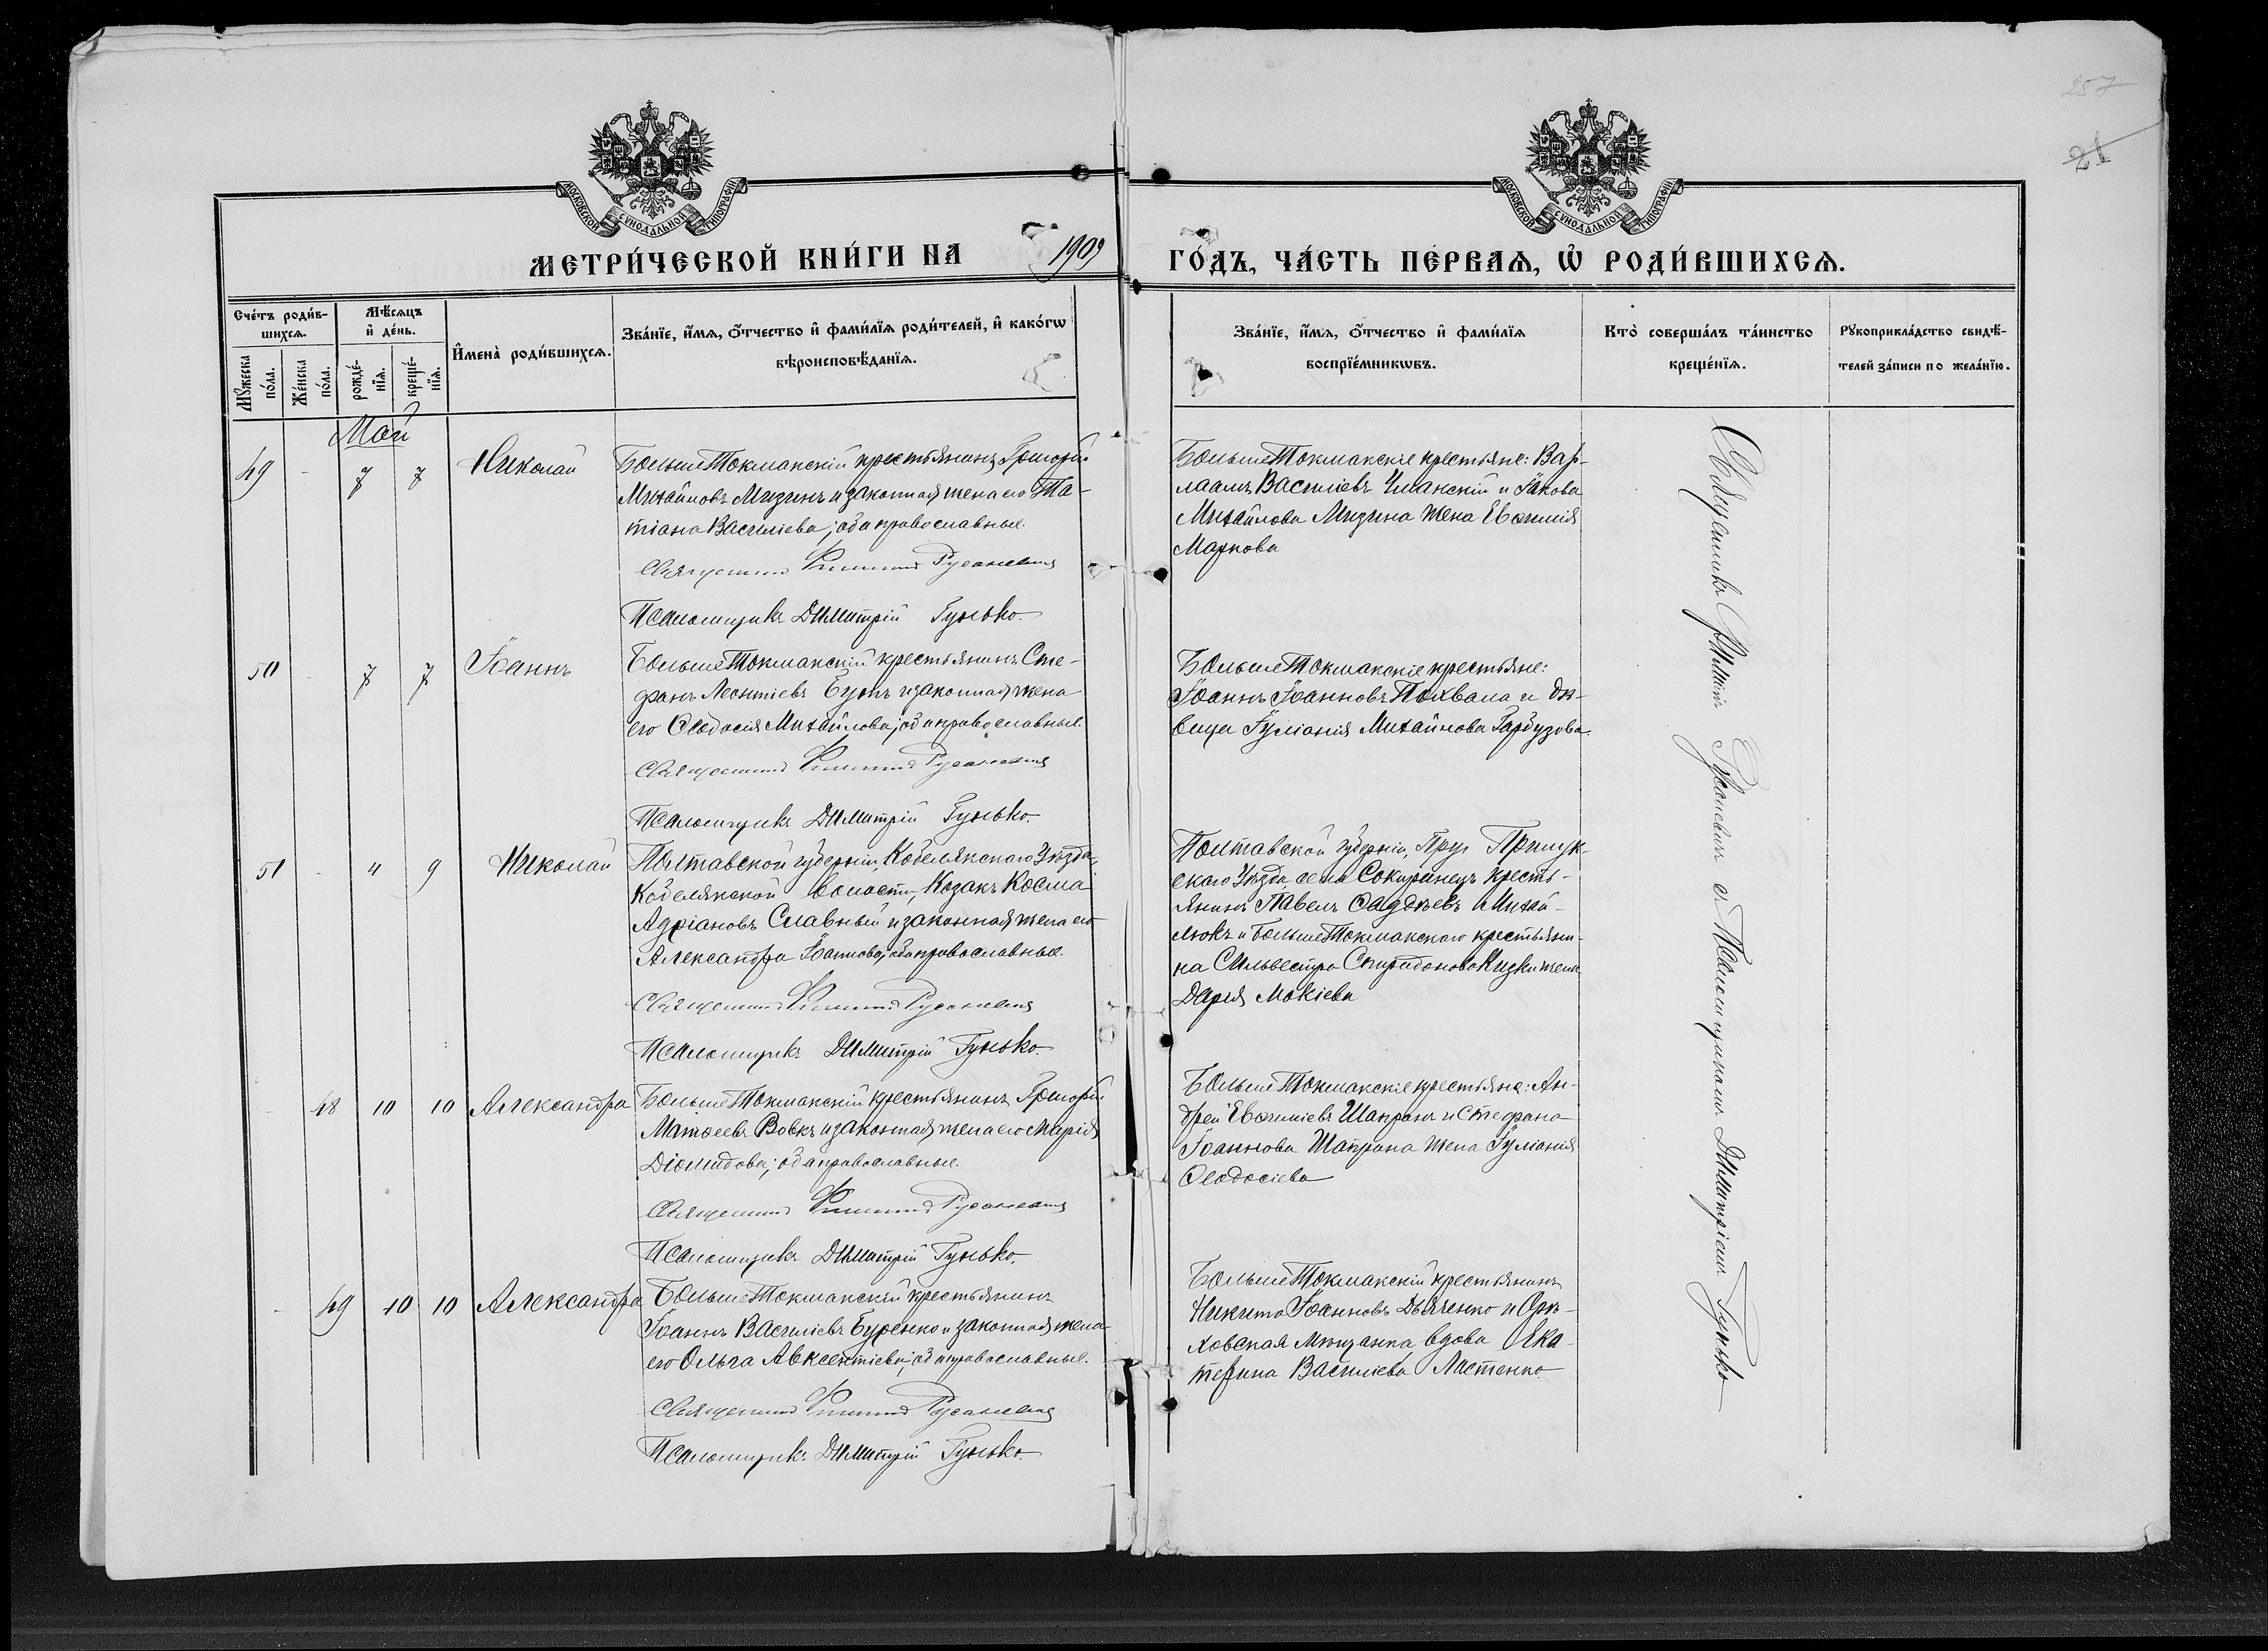 257
21
МОСКОВСКОЙ СѴНОДАЛЬНОЙ ТИПОГРАФІИ
МОСКОВСКОЙ СѴНОДАЛЬНОЙ ТИПОГРАФІИ
МЕТРИ́ЧЕСКОЙ КНИ́ГИ НА 1909 ГО́ДЪ, ЧА́СТЬ ПЕ́РВАѦ, Ѡ҆ РОДИ́ВШИХСѦ.
Сче́тъ роди́в-
шихсѧ.
Мꙋ́жеска по́ла.
Же́нска по́ла.
Мѣ́сѧцъ
и҆ де́нь.
рожде́-
нїѧ.
креще́-
нїѧ.
И҆мена̀ роди́вшихсѧ.
Зва́нїе, и҆́мѧ, ѻ҆́тчество и҆ фами́лїѧ роди́телей, и҆ како́гѡ
вѣроисповѣ́данїѧ.
Зва́нїе, и҆́мѧ, ѻ҆́тчество и҆ фами́лїѧ
воспрїе́мникѡвъ.
Кто̀ соверша́лъ та́инство
креще́нїѧ.
Рꙋкоприкла́дство свидѣ́-
телей за́писи по жела́нїю.
Май
49 - 7 7 Николай
БольшеТокмакскій крестьянинъ Григорій
Михайловъ Мизинъ и законная жена его Та-
тіана Васильева; оба православные.
Священникъ Филиппъ Русаневичъ
Псаломщикъ Димитрій Гунько.
БольшеТокмакскіе крестьяне: Вар-
лаамъ Васильевъ Чманскій и Іакова
Михайлова Мизина жена Евѳимія
Маркова
50 - 7 7 Іоаннъ
БольшеТокмакскій крестьянинъ Сте-
фанъ Леонтіевъ Бунъ и законная жена
его Ѳеодосія Михайлова; оба православные.
Священникъ Филиппъ Русаневичъ
Псаломщикъ Димитрій Гунько.
БольшеТокмакскіе крестьяне:
Іоаннъ Іоанновъ Похвала и дѣ-
вица Іуліанія Михайлова Гарбузова.
51 - 4 9 Николай
Полтавской губерніи, Кобелякскаго Уѣзда,
Кобелякской волости, Козакъ Косма
Адріановъ Славный и законная жена его
Александра Іоаннова; оба православные.
Священникъ Филиппъ Русаневичъ
Псаломщикъ Димитрій Гунько.
Полтавской губерніи, Прул Прилук-
скаго Уѣзда, села Сокиринецъ кресть-
янинъ Павелъ Ѳаддѣевъ Михай-
люкъ и БольшеТокмакскаго крестьяни-
на Сильвестра Спиридонова Кизки жена
Дарія Мокіева
- 48 10 10 Александра
БольшеТокмакскій крестьянинъ Григорій
Матѳеевъ Вовкъ и законная жена его Марія
Діомидова; оба православные.
Священникъ Филиппъ Русаневичъ
Псаломщикъ Димитрій Гунько.
БольшеТокмакскіе крестьяне: Ан-
дрей Евѳиміевъ Шапранъ и Стефана
Іоаннова Шапрана жена Іуліанія
Ѳеодосіева
- 49 10 10 Александра
БольшеТокмакскій крестьянинъ
Іоаннъ Васильевъ Буренко и законная жена
его Ольга Авксентіева; оба православные.
Священникъ Филиппъ Русаневичъ
Псаломщикъ Димитрій Гунько.
БольшеТокмакскій крестьянинъ
Никита Іоанновъ Дьяченко и Орѣ-
ховская мѣщанка, вдова Ека-
терина Васильева Ластенко
Священникъ Филиппъ Русаневичъ съ Псаломщикомъ Димитріемъ Гунько